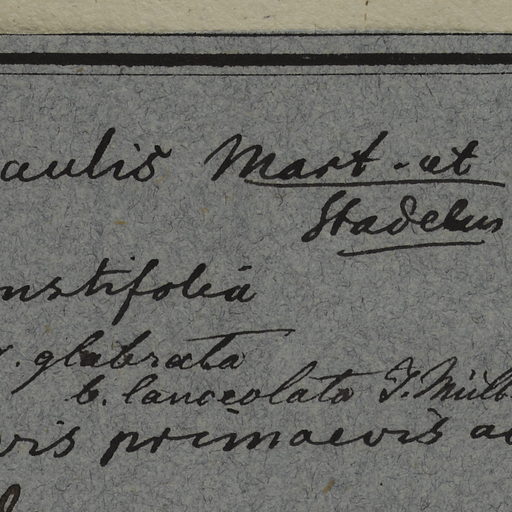 aulis Mart. et
Stadelm
nstifolia
. glabrata
b. lanceolata J. Müll
vis primaevis a